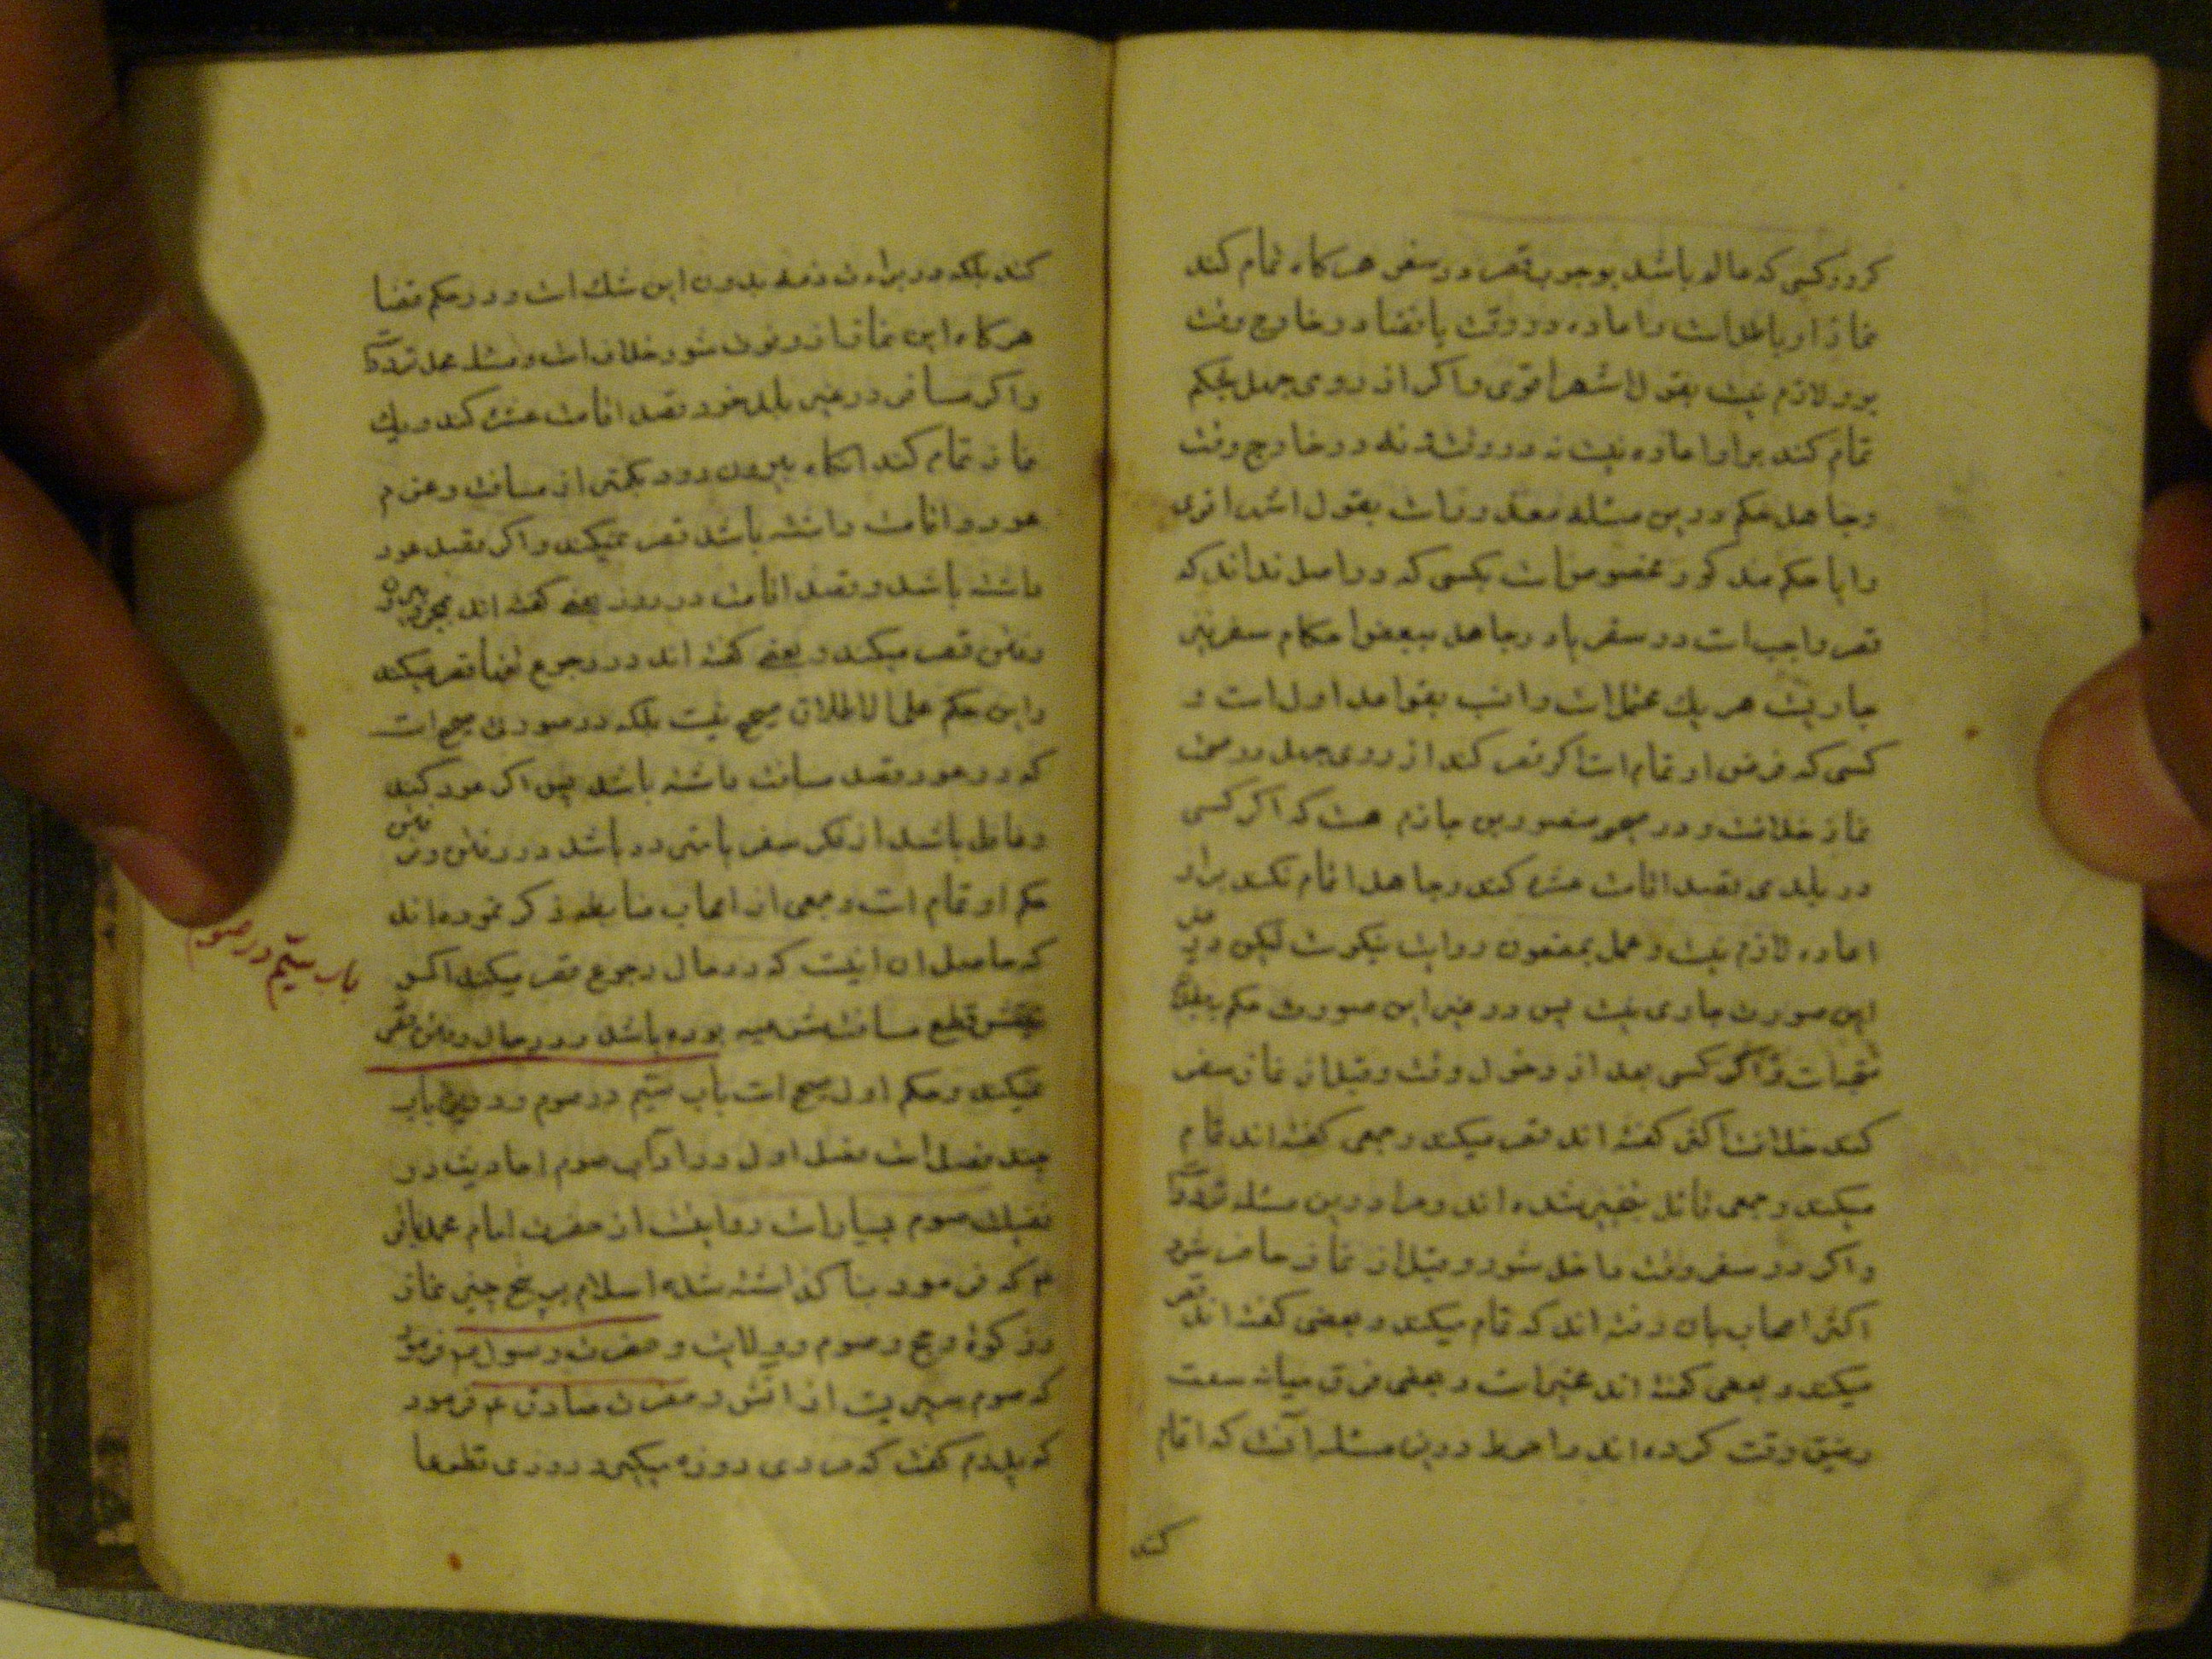 کردد کسی که عالم باشد بوجوب قصر در سفر هرکاه تمام کند
نماز او باطلست و اعاده در وقت یا قضا در خارج وقت
برو لازم نیست بقول اشهر اقوی و اکر از روی جهل بحکم
تمام کند برو اعاده نیست نه در وقت و نه در خارج وقت
و جاهل حکم درین مسئله معذورست بقول اشهر اقوی
وایا حکم مذکور مخصوص است بکسی که در اصل نداند که
قصر واجب است در سفر یا در جاهل ببعض احکام سفر نیز
جاریست هر یک محتمل است و انسب بقواعد اول است و
کسی که فرض او تمام است اکر قصر کند از روی جهل در صحت
نماز خلافست و در منصور بن حازم هست که اکر کسی
در بلدی قصد اقامت عشره کند و جاهل اتمام نکند برو
اعاده لازم نیست و عمل بمضمون روایت نیکوست لیکن در غیر
این صورت جاری نیست پس در غیر این صورت حکم
است و اکر کسی بعد از دخول وقت و قبل از نماز سفر
کند خلافست اکثر کفته اند قصر میکند و جمعی کفته اند تمام
میکند و جمعی قائل بتخییر شده اند و مرا درین مسئله ترددست
و اکر در سفر وقت داخل شود و قبل از نماز حاضر شود
اکثر اصحاب بان رفته اند که تمام میکند و بعضی کفته اند قصر
میکند و بعضی کفته اند مخیر است و بعضی فرق میانه سعت
و ضیق وقت کرده اند و احوط درین مسئله آنست که اتمام
کند
کند بلکه در براءت ذمه بدون این شک است و در حکم قضا
هرکاه این نماز ازو فوت شود خلاف است و مسئله محل ترددست
و اکر مسافر در غیر بلد خود قصد اقامت عشره کند و یک
نماز تمام کند انکاه بیرون رود بکمتر از مسافت و عزم
عود و اقامت داشته باشد قصر نمیکند و اکر قصد عود
داشته باشد و قصد اقامت ده روز بعضی کفته اند بمجرد بیرون
رفتن قصر میکند و بعضی کفته اند در رجوع قصر میکند
و این حکم علی الاطلاق صحیح نیست بلکه در صورتی صحیح است
که در عود قصد مسافت داشته باشد پس اکر عود کند
و غافل باشد از فکر سفر یا متردد باشد در رفتن و نرفتن
حکم او تمام است و جمعی از اصحاب ضابطه ذکر نموده اند
که حاصل ان اینست که در حال رجوع قصر میکند اکر
قطع مسافت شرعیه بوده باشد و در حال رفتن قصر
نمیکند و حکم اول صحیح است باب ستیم در صوم و درین باب
چند فصل است فصل اول در آداب صوم احادیث در
فضیلت صوم بسیار است روایتست از حضرت امام محمد باقر
ع م که فرمود بنا کذاشته شده اسلام بر پنج چیز نماز
و زکوة و حج و صوم و ولایت و حضرت رسول ص م فرمود
که صوم سپریست از اتش و حضرت صادق ع م فرمود
که پدرم کفت که مردی روزه میکیرد روزی تطوعا
باب ستیم در صوم